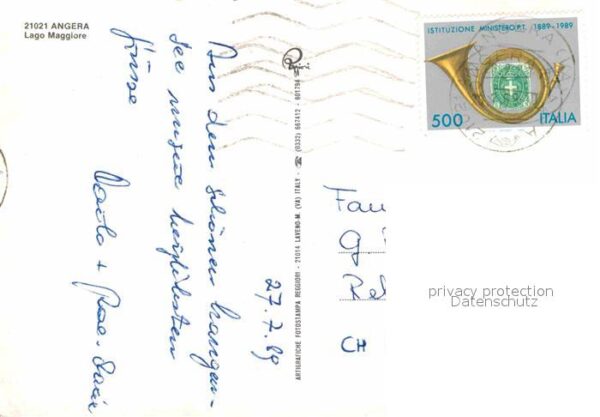 21021 ANGERA
Lago Maggiore
27.7.89
Aus dem schönen Langen-
see unsere herzlichsten
Grüsse
+
ARTIGRAFICHE FOTOSTAMPA REGGIORI - 21014 LAVENO-M. (VA) ITALY - ☎ (0332) 667412 - 601794
ISTITUZIONE MINISTERO P.T. 1889-1989
500 ITALIA
Fam
privacy protection
Datenschutz